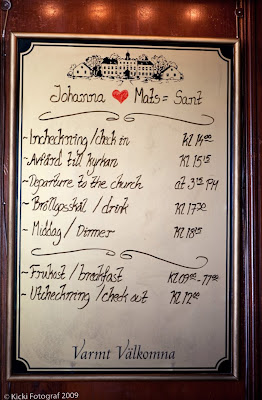 Johanna ♥ Mats = Sant
~ Incheckning / check in kl 14⁰⁰
~ Avfärd till kyrkan kl 15¹⁵
~ Departure to the church at 3¹⁵ PM
~ Bröllopsskål / drink kl 17³⁰
~ Middag / Dinner kl 18¹⁵
~ Frukost / breakfast kl 09⁰⁰-11⁰⁰
~ Utcheckning / check out kl 12⁰⁰
Varmt Välkomna
© Kicki Fotograf 2009